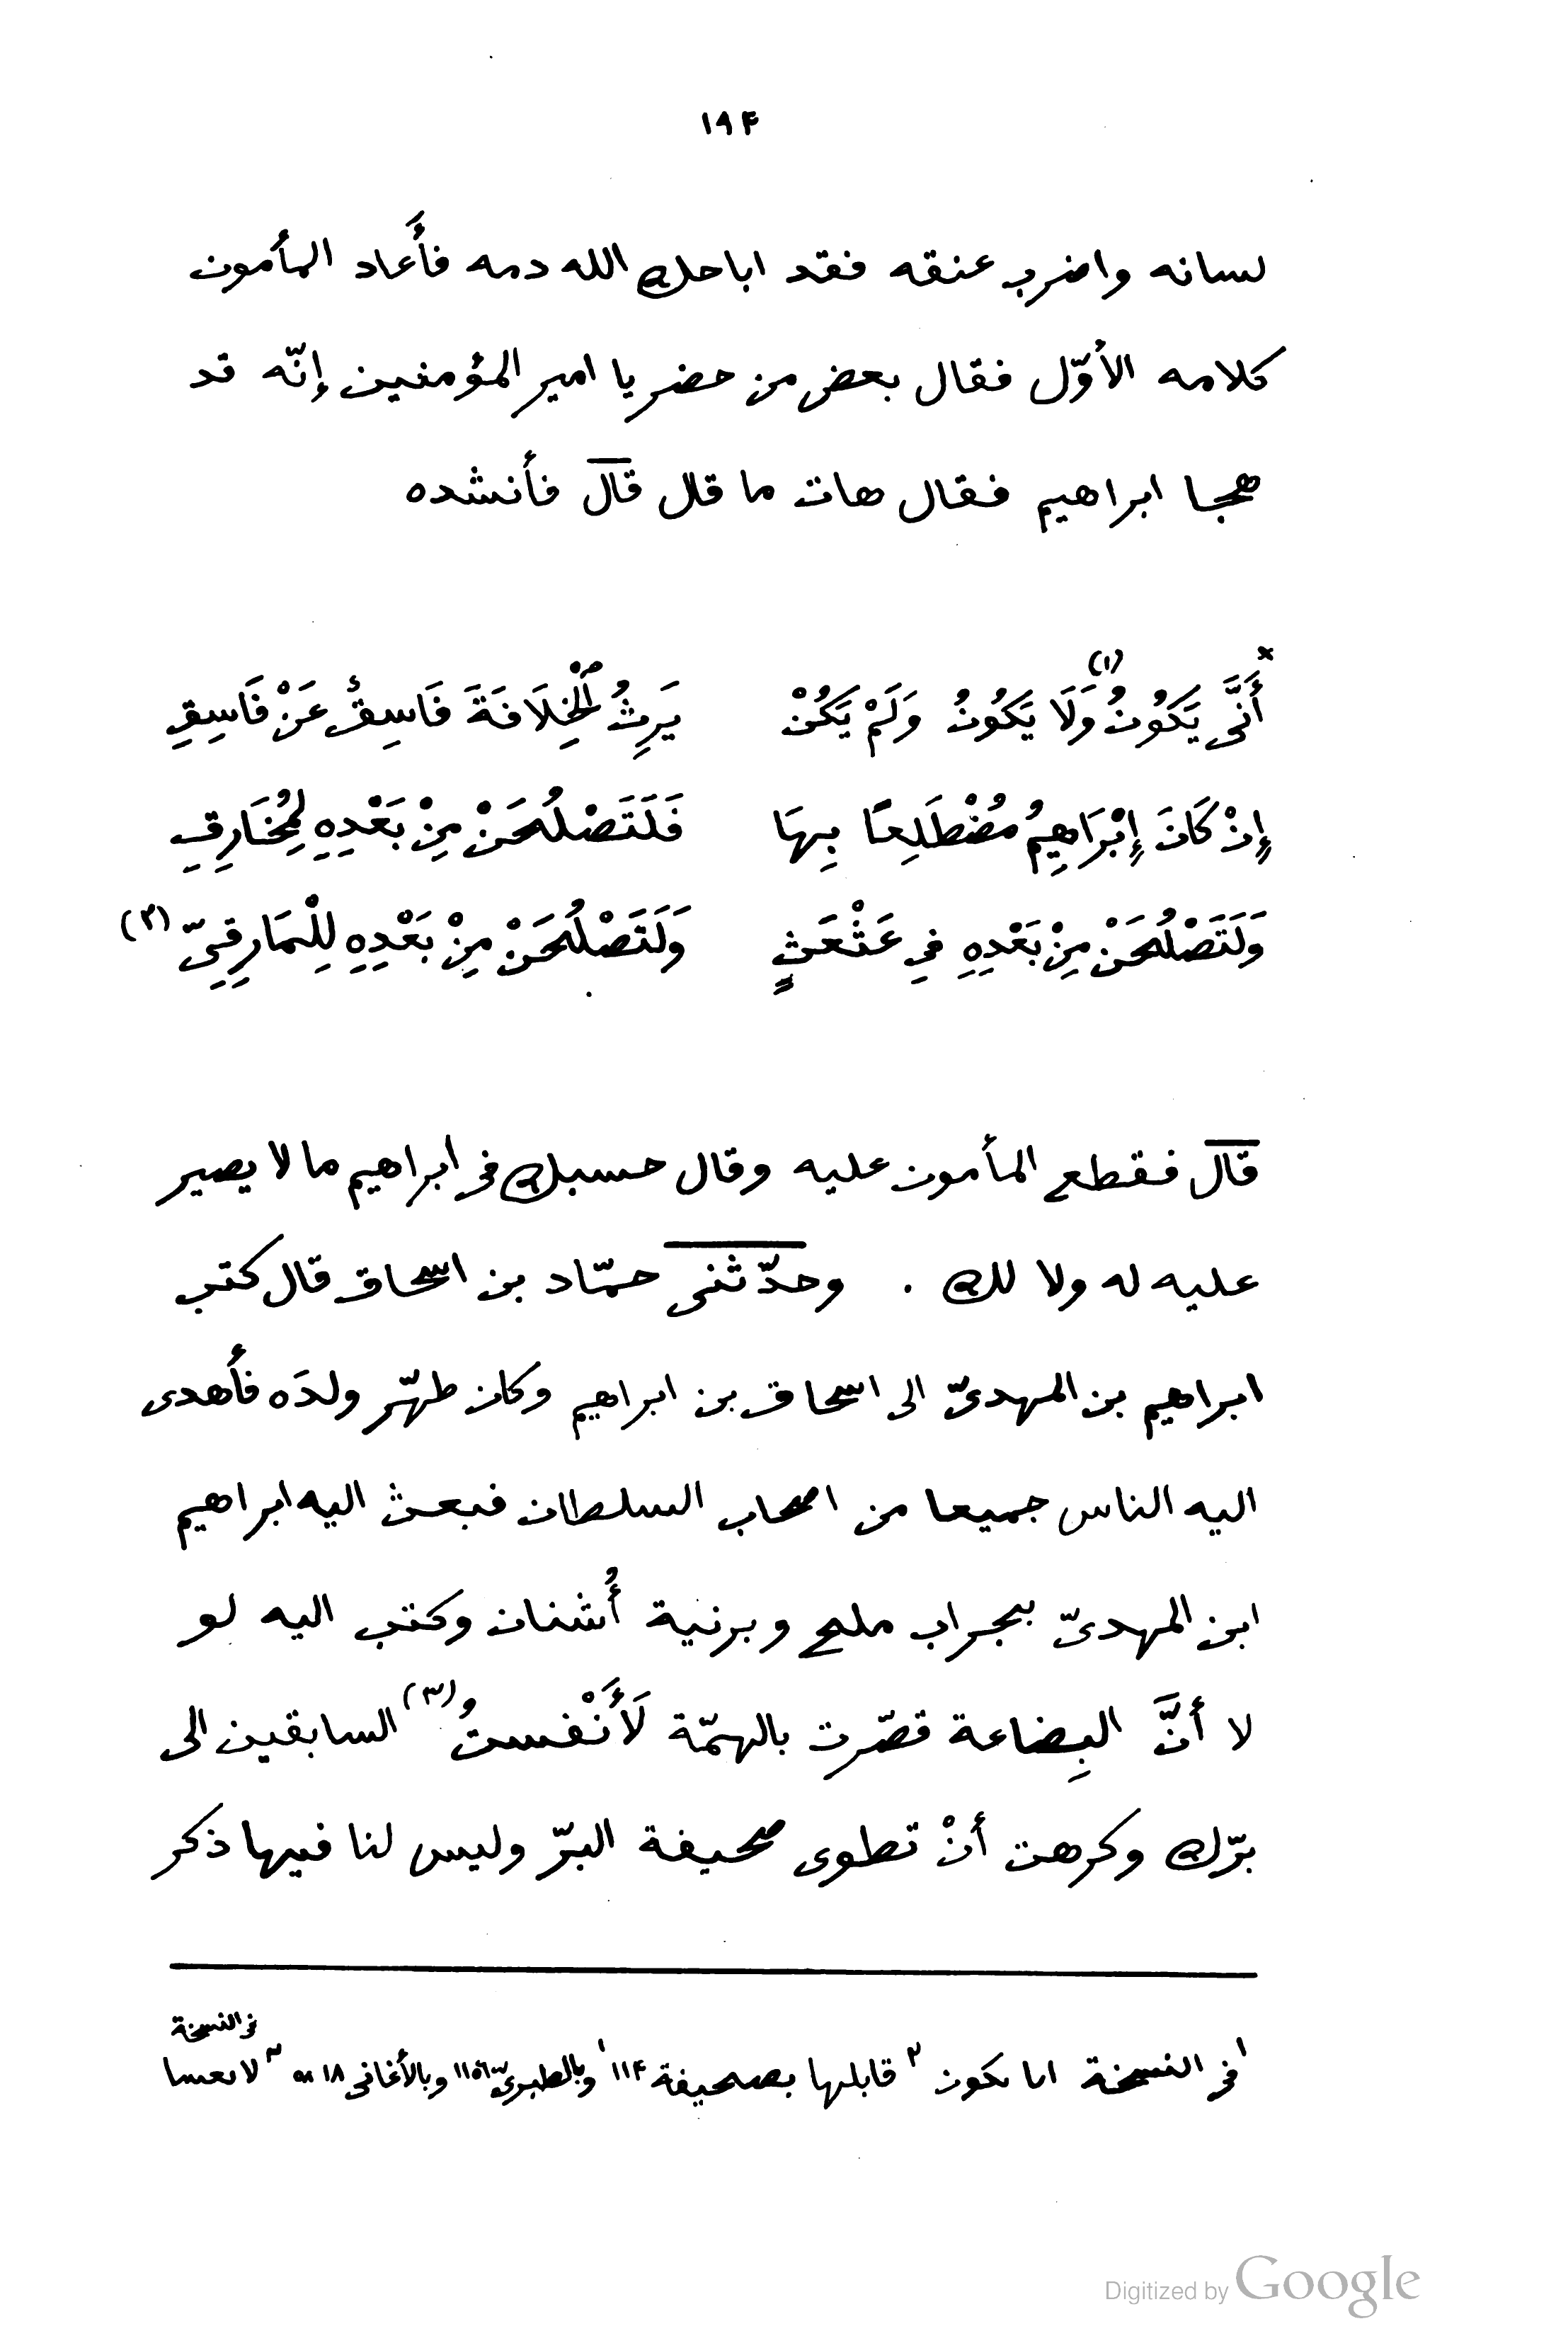 ١٩۴
لسانه واضرب عنقه فقد اباحك الله دمه فأَعاد المأمون
كلامه الأوّل فقال بعض من حضر يا امير المؤمنين إنّه قد
هجا ابراهيم فقال هات ما قال قال فأنشده
* أَنَّى يَكُونُ (١) وَلَا يَكُونُ وَلَمْ يَكُنْ يَرِثُ ٱلْخِلَافَةَ فَاسِقٌ عَنْ فَاسِقِ
إِنْ كَانَ إِبْرَاهِيمُ مُضْطَلِعًا بِهَا فَلَتَصْلُحَنْ مِنْ بَعْدِهِ لِمُخَارِقِ
وَلَتَصْلُحَنْ مِنْ بَعْدِهِ فِي عَثْعَثٍ وَلَتَصْلُحَنْ مِنْ بَعْدِهِ لِلْمَارِقِيّ (٢)
قال فقطع المأمون عليه وقال حسبك فى ابراهيم ما لا يصير
عليه له ولا لك . وحدّثنى حمّاد بن اسحاق قال كتب
ابراهيم بن المهدىّ الى اسحاق بن ابراهيم وكان طهّر ولدَه فأَهدى
اليه الناس جميعا من اصحاب السلطان فبعث اليه ابراهيم
ابن المهدىّ بجراب ملح وبرنية أُشنان وكتب اليه لو
لا أنَّ البِضاعة قصّرت بالهمّة لَأَنْفستُ (٣) السابقين الى
برّك وكرهت أنْ تطوى صحيفة البرّ وليس لنا فيها ذكر
فى النسخة
١ فى النسخة اىا ىكون ٢ قابلها بصحيفة ١١۴ وبالطبرىّ ١١٥٦ وبالأغانى ١٨ ٥٨ ٣ لاىعسا
Digitized by Google